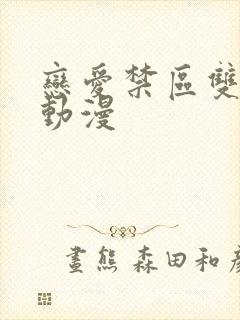 戀愛禁區雙
動漫
畫熊 森田和彥